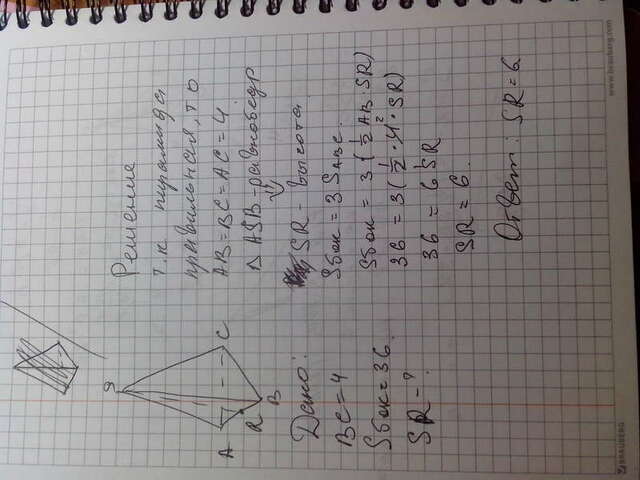 Решение
т.к. пирамида
правильная, то
AB=BC=AC=4
Δ ASB - равнобедр
⇓
SR - высота.
Sбок = 3 SABC.
Sбок = 3 (1/2 AB · SR)
36 = 3 (1/2 · 4² · SR)
36 = 6 SR
SR = 6.
Ответ: SR = 6
S
A
C
R
B
Дано:
BC = 4
Sбок = 36.
SR - ?
BRAUBERG
www.brauberg.com